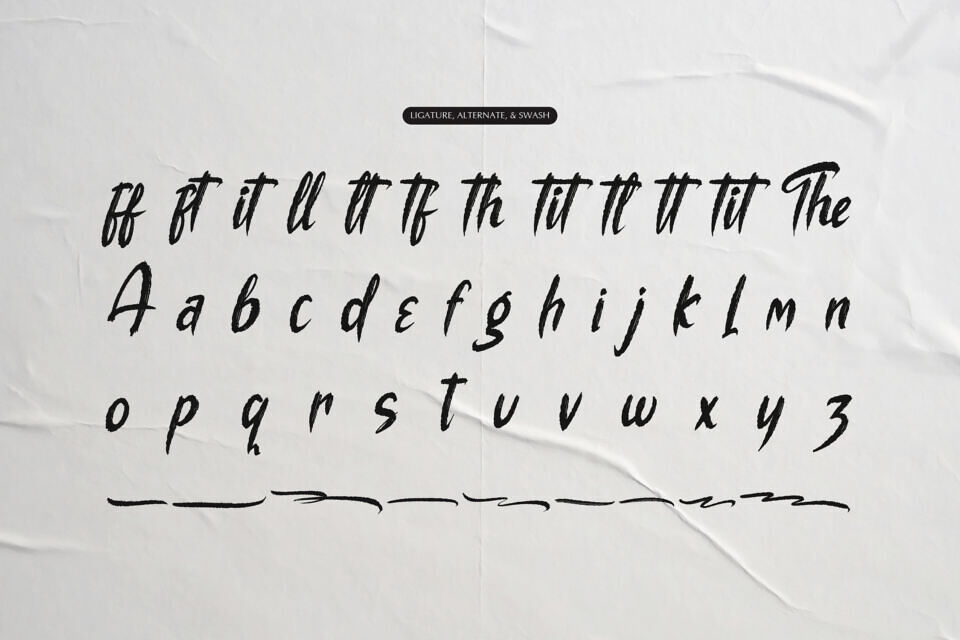 LIGATURE, ALTERNATE, & SWASH
ff ft it ll lt tf th tit tl tt tit The
A a b c d ε f g h i j k l m n
o p q r s t u v w x y z